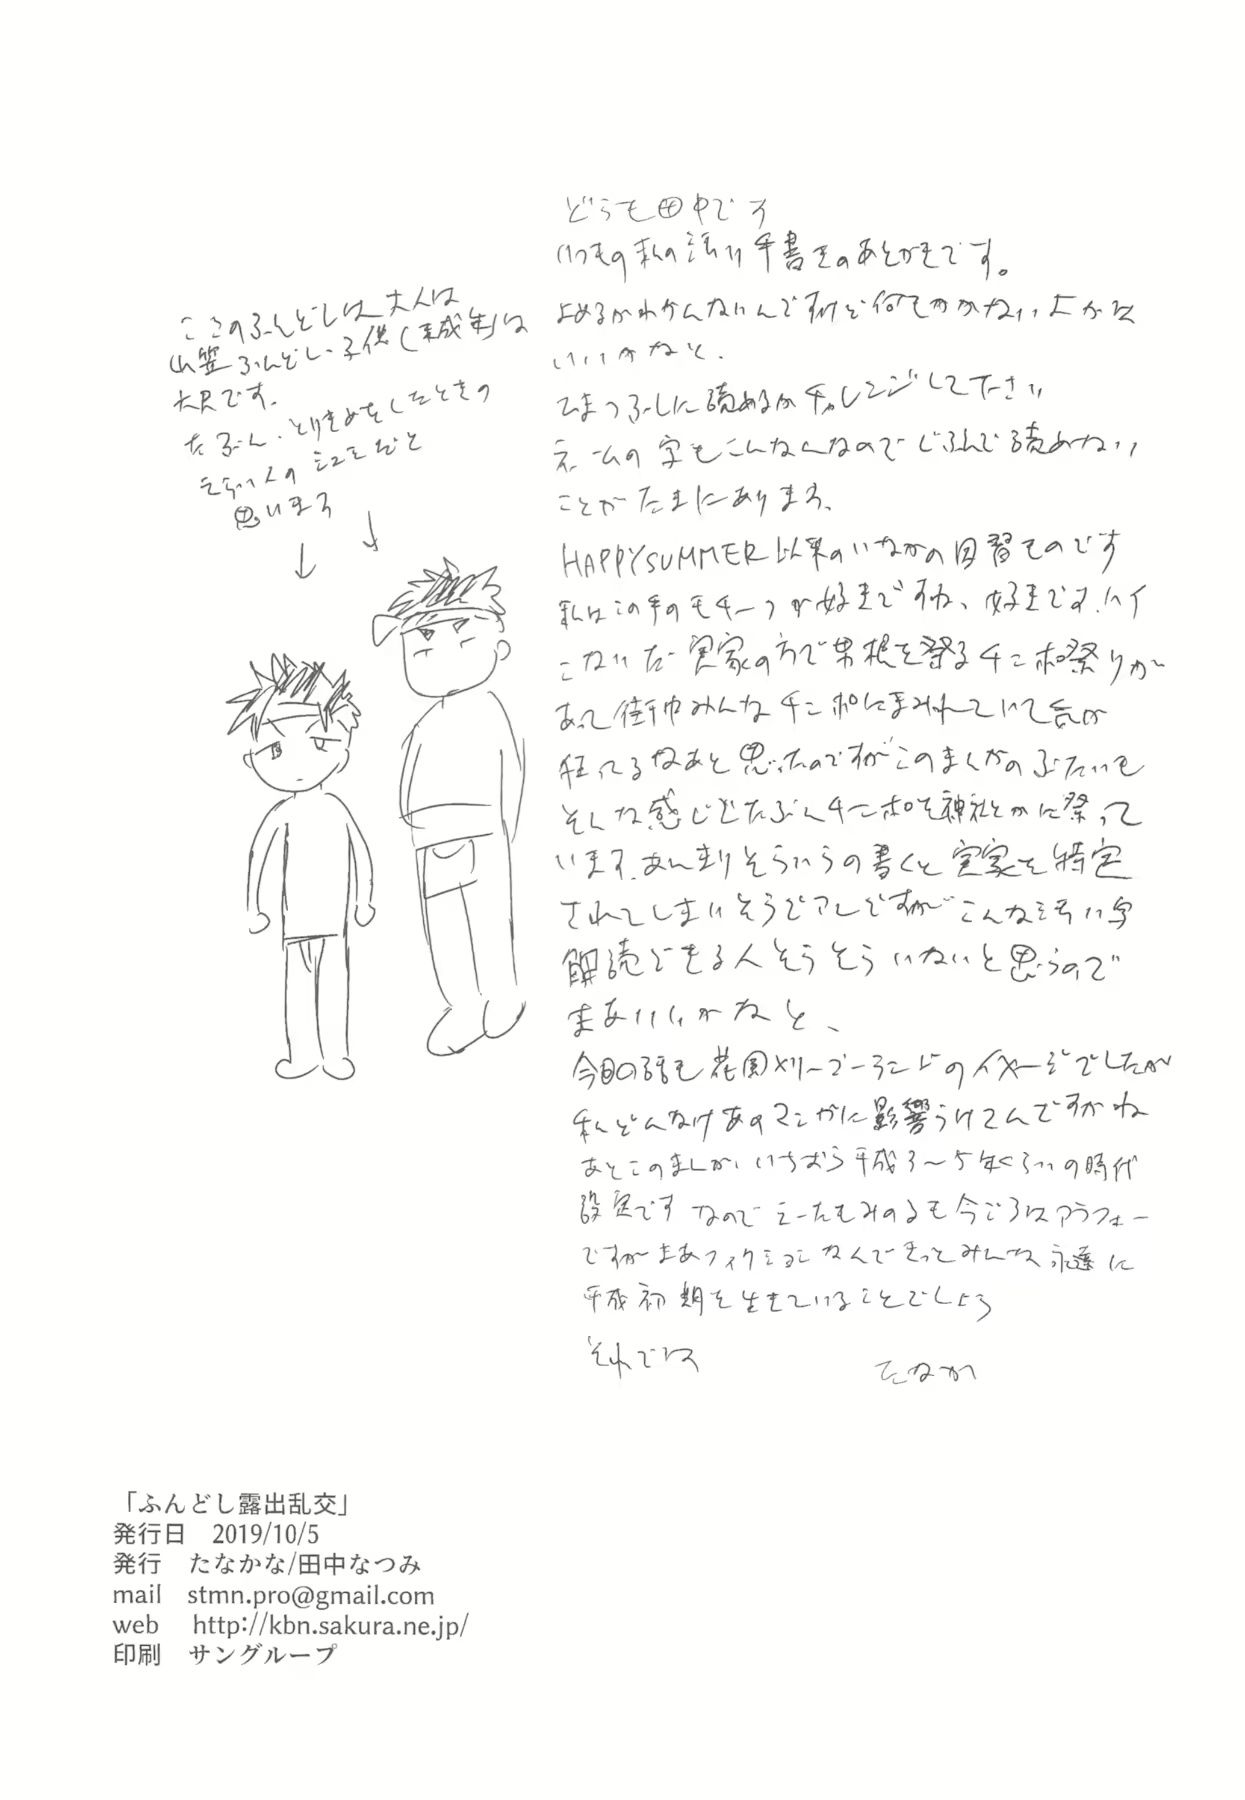 ここのふんどしは大人は
山笠ふんどし、子供(未成年)は
六尺です。
たぶん、とりきめをしたときの
えらい人の
思います
どうも田中です
いつもの私の汚い手書きのあとがきです。
よめるかわかんないんですけど何もかかないよかは
いいかなと、
ひまつぶしに読めるかチャレンジして下さい
ネームの字もこんなんなのでじぶんで読めない
ことがたまにあります、
HAPPYSUMMER以来のいなかの因習ものです
私はこの手のモチーフが好きですね、好きです、ハイ
こないだ実家の方で男根を祭るチンポ祭りが
あって街中みんなチンポにまみれていて気が
狂ってるなあと思ったのですがこのまんがのぶたいも
そんな感じでたぶんチンポを神社とかに祭って
います、あんまりそういうの書くと実家を特定
されてしまいそうでアレですがこんな汚い字
解読できる人そうそういないと思うので
まあいいかなと、
今回の話も花園メリーゴーランドのイメージでしたが
私どんだけあのマンガに影響うけてんですかね
あとこのまんが、いちおう平成3〜5年くらいの時代
設定です なので もみのるも今ごろはアラフォー
ですがまあフィクションなんできっとみんな永遠に
平成初期を生きていることでしょう
それでは
たなか
「ふんどし露出乱交」
発行日　2019/10/5
発行　たなかな/田中なつみ
mail　stmn.pro@gmail.com
web　http://kbn.sakura.ne.jp/
印刷　サングループ